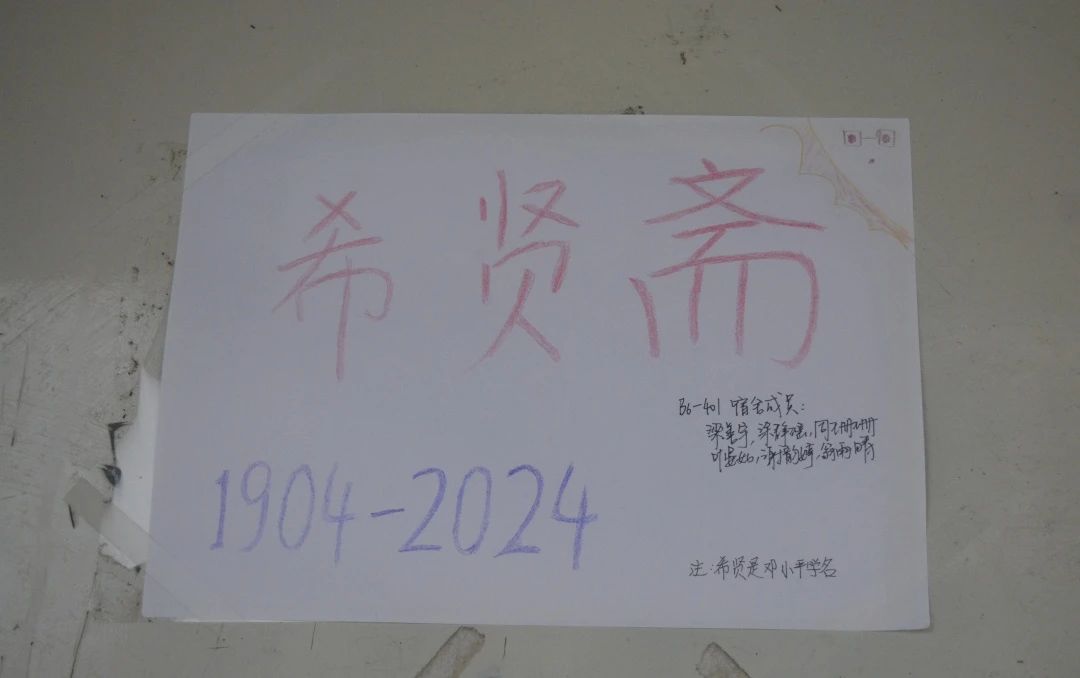 希贤斋
B6-401 宿舍成员:
周珊珊
谢韵婷,
1904-2024
注:希贤是邓小平学名